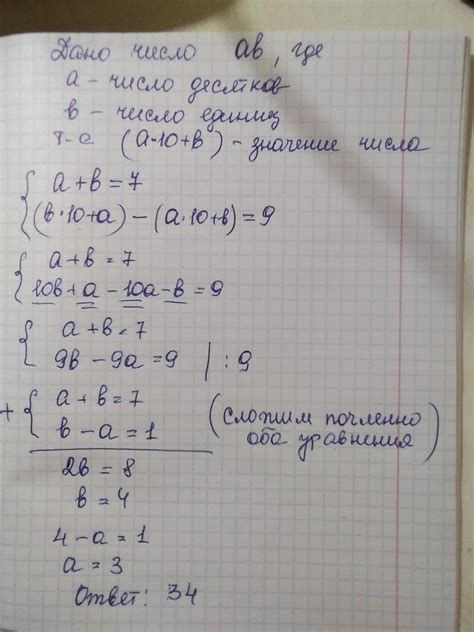 Дано число ав, где
а - число десятков
в - число единиц
т-е (а·10+в) - значение числа
{ а+в=7
(в·10+а)-(а·10+в)=9
{ а+в=7
10в+а-10а-в=9
{ а+в=7
9в-9а=9 |:9
+ { а+в=7
в-а=1 (сложим почленно оба уравнения)
2в=8
в=4
4-а=1
а=3
Ответ: 34